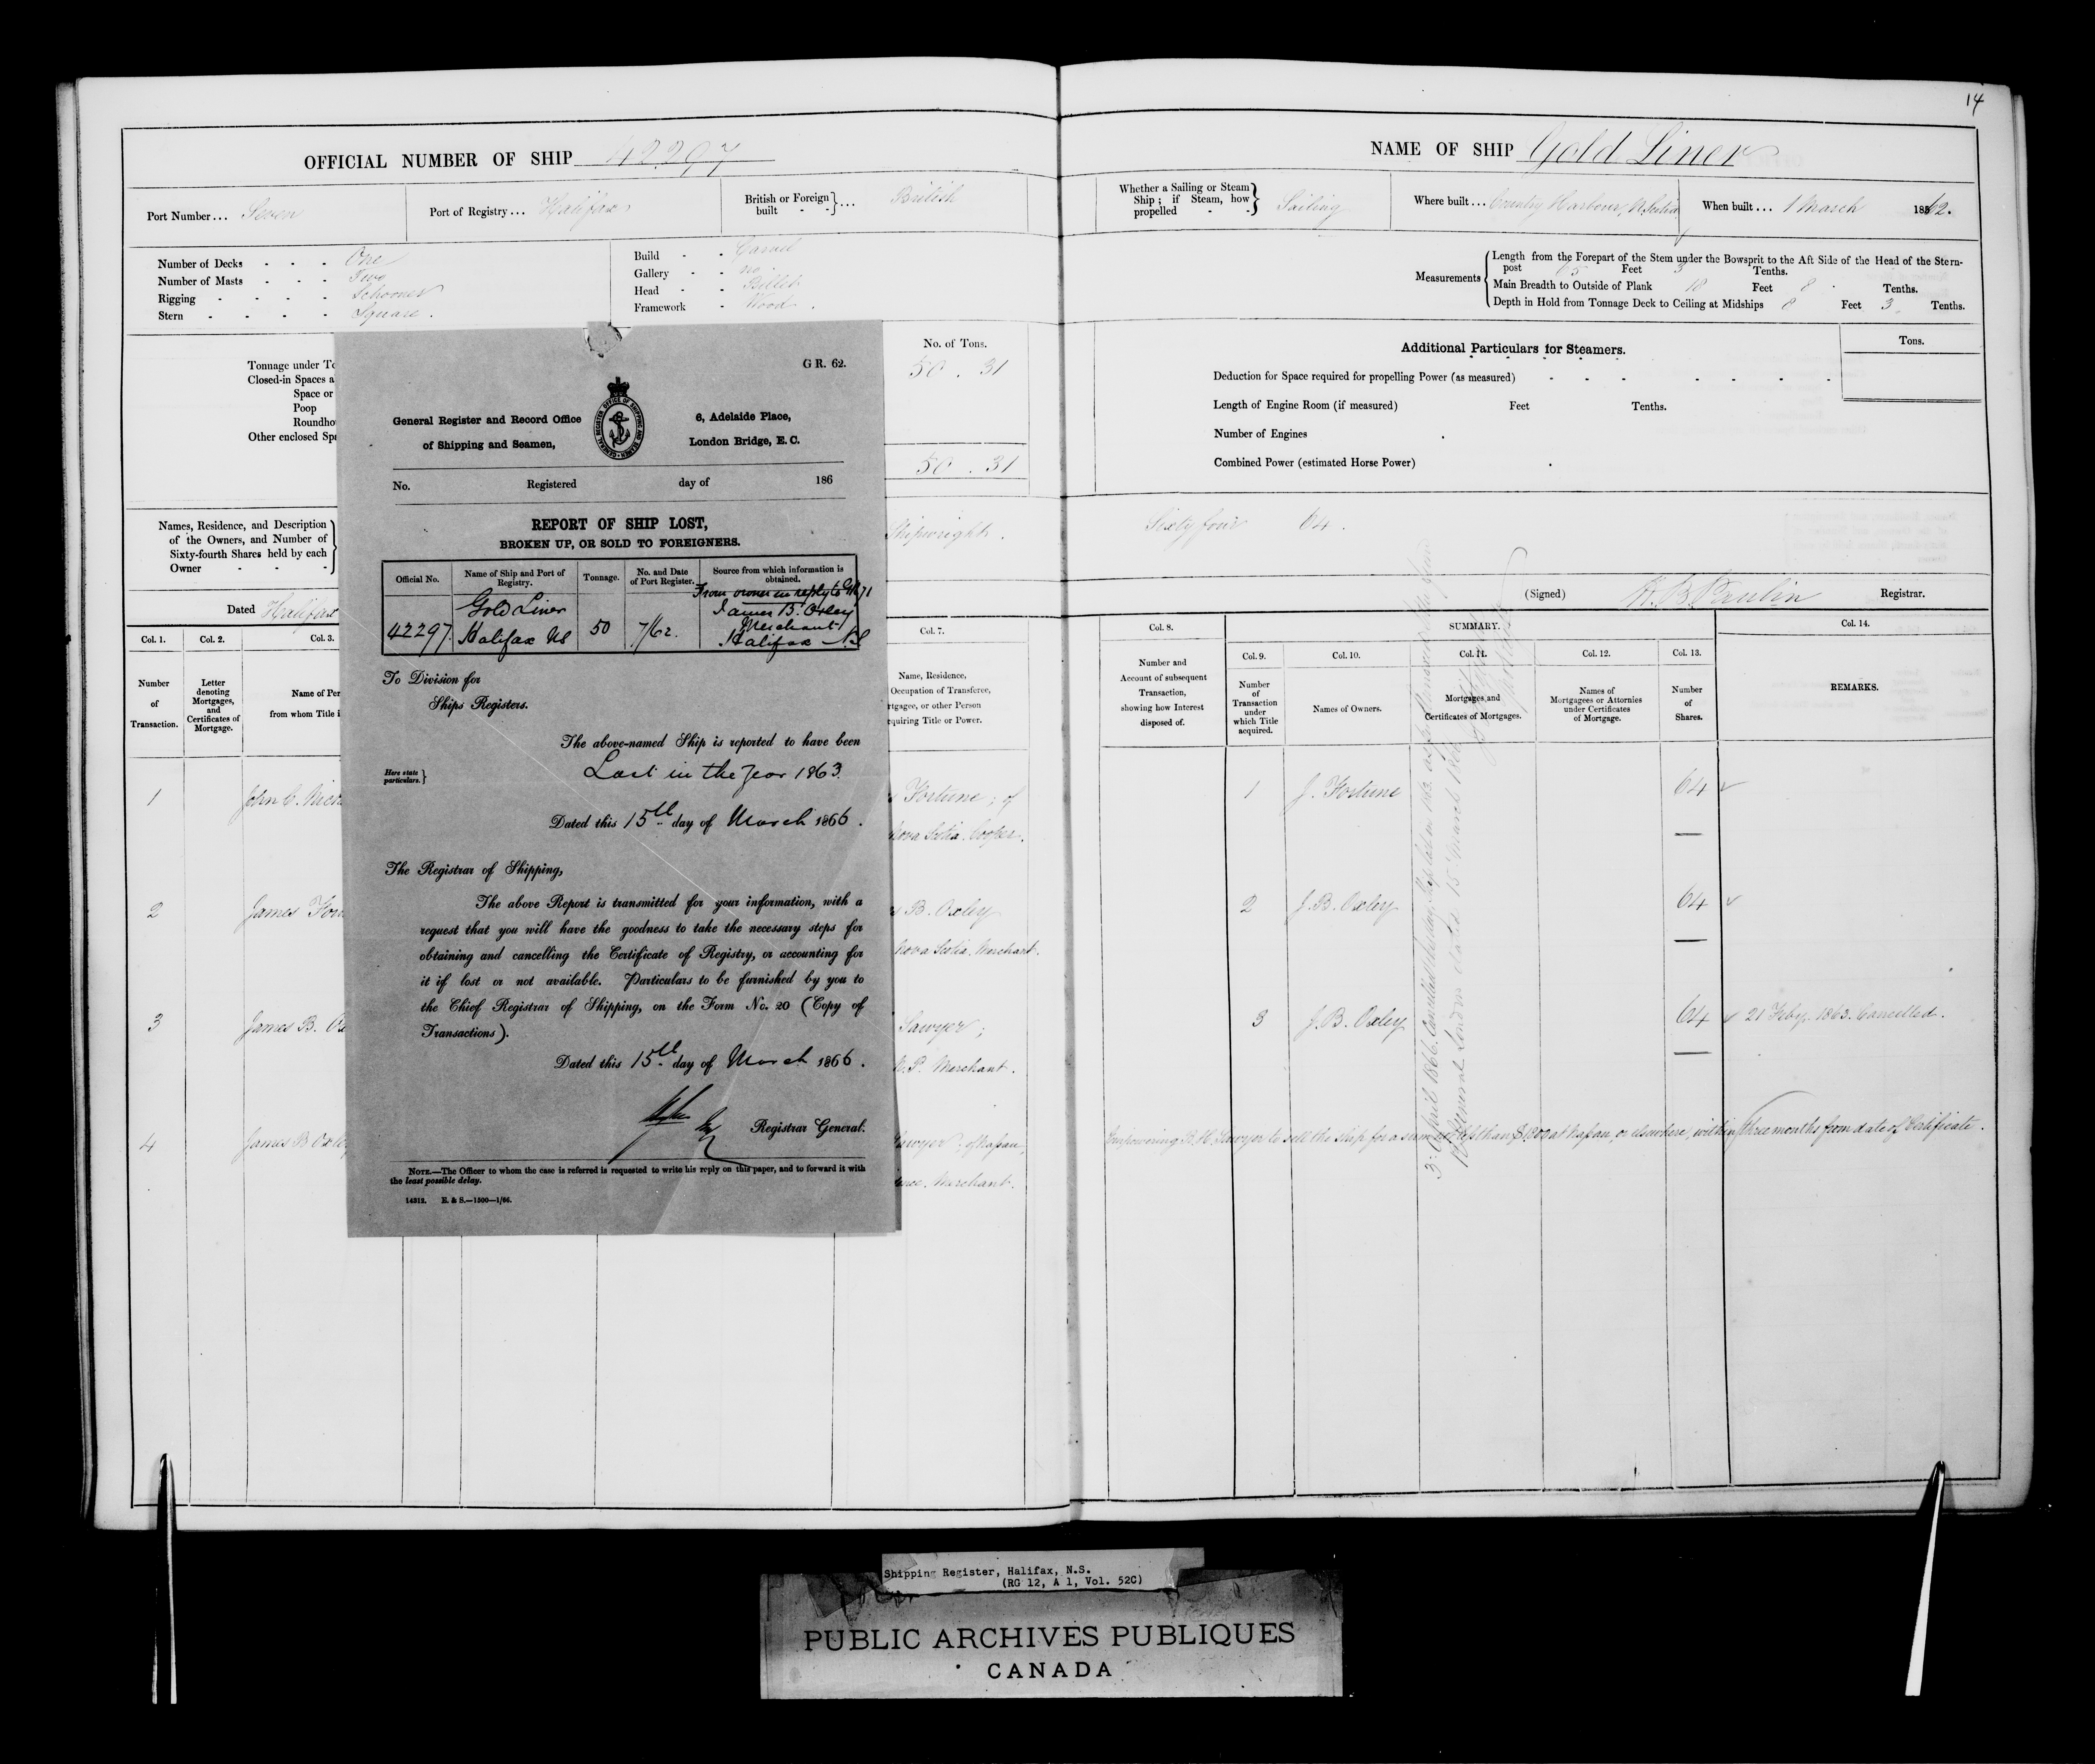 14
OFFICIAL NUMBER OF SHIP 42297
Port Number... Seven
Port of Registry... Halifax
British or Foreign built - - } ... British
Number of Decks - - - One
Number of Masts - - - Two
Rigging - - - - Schooner
Stern - - - - Square.
Build - - Carvel
Gallery - - no
Head - - Billet
Framework - Wood.
Tonnage under To
Closed-in Spaces a
Space or
Poop
Roundhou
Other enclosed Spa
No. of Tons.
50 . 31
50 . 31
Names, Residence, and Description
of the Owners, and Number of
Sixty-fourth Shares held by each
Owner - - -
Shipwright.
Dated Halifax
Col. 1.
Number
of
Transaction.
Col. 2.
Letter
denoting
Mortgages,
and
Certificates of
Mortgage.
Col. 3.
Name of Per
from whom Title i
Col. 7.
Name, Residence,
Occupation of Transferee,
rtgagee, or other Person
quiring Title or Power.
1 John C.
Fortune; of
Nova Scotia. Cooper.
2 James For
s B. Oxley
Nova Scotia. Merchant.
3 James B. Ox
Sawyer;
Merchant.
4 James B Oxley
Sawyer; of Napan,
Merchant.
G R. 62.
General Register and Record Office
of Shipping and Seamen,
GENERAL REGISTER OFFICE OF SHIPPING AND SEAMEN
6, Adelaide Place,
London Bridge, E. C.
No. Registered day of 186
REPORT OF SHIP LOST,
BROKEN UP, OR SOLD TO FOREIGNERS.
Official No.
Name of Ship and Port of
Registry.
Tonnage.
No. and Date
of Port Register.
Source from which information is
obtained.
42297.
Gold Liner
Halifax NS
50
7/62.
From owner in reply to GR 71
James B. Oxley
Merchant
Halifax N.S
To Division for
Ships Registers.
The above-named Ship is reported to have been
Here state
particulars. }
Lost in the year 1863.
Dated this 15th day of March 1866.
The Registrar of Shipping,
The above Report is transmitted for your information, with a
request that you will have the goodness to take the necessary steps for
obtaining and cancelling the Certificate of Registry, or accounting for
it if lost or not available. Particulars to be furnished by you to
the Chief Registrar of Shipping, on the Form No. 20 (Copy of
Transactions).
Dated this 15th day of March 1866.
Registrar General.
NOTE.—The Officer to whom the case is referred is requested to write his reply on this paper, and to forward it with
the least possible delay.
14312. E. & S.—1500—1/66.
NAME OF SHIP Gold Liner
Whether a Sailing or Steam
Ship; if Steam, how
propelled - - } Sailing
Where built... Country Harbour, N. Scotia
When built... 1 March 1862.
Measurements
Length from the Forepart of the Stem under the Bowsprit to the Aft Side of the Head of the Stern-
post 65 Feet 3 Tenths.
Main Breadth to Outside of Plank 18 Feet 8 Tenths.
Depth in Hold from Tonnage Deck to Ceiling at Midships 8 Feet 3. Tenths.
Additional Particulars for Steamers.
Tons.
Deduction for Space required for propelling Power (as measured) - - - - - - -
Length of Engine Room (if measured) Feet Tenths.
Number of Engines
Combined Power (estimated Horse Power)
Sixty four 64.
(Signed) Registrar.
Col. 8.
Number and
Account of subsequent
Transaction,
showing how Interest
disposed of.
SUMMARY.
Col. 9.
Number
of
Transaction
under
which Title
acquired.
Col. 10.
Names of Owners.
Col. 11.
Mortgages and
Certificates of Mortgages.
Col. 12.
Names of
Mortgagees or Attornies
under Certificates
of Mortgage.
Col. 13.
Number
of
Shares.
Col. 14.
REMARKS.
1 J. Fortune 64
2 J. B. Oxley 64
3 J. B. Oxley 64 21 Feby. 1863. Cancelled.
Empowering B. H. Sawyer to sell the ship for a sum not less than at Napan or elsewhere, within three months from date of Certificate.
3 April 1866. Cancelled
General London dated 15 March 1866
Shipping Register, Halifax, N.S.
(RG 12, A 1, Vol. 52C)
PUBLIC ARCHIVES PUBLIQUES
CANADA